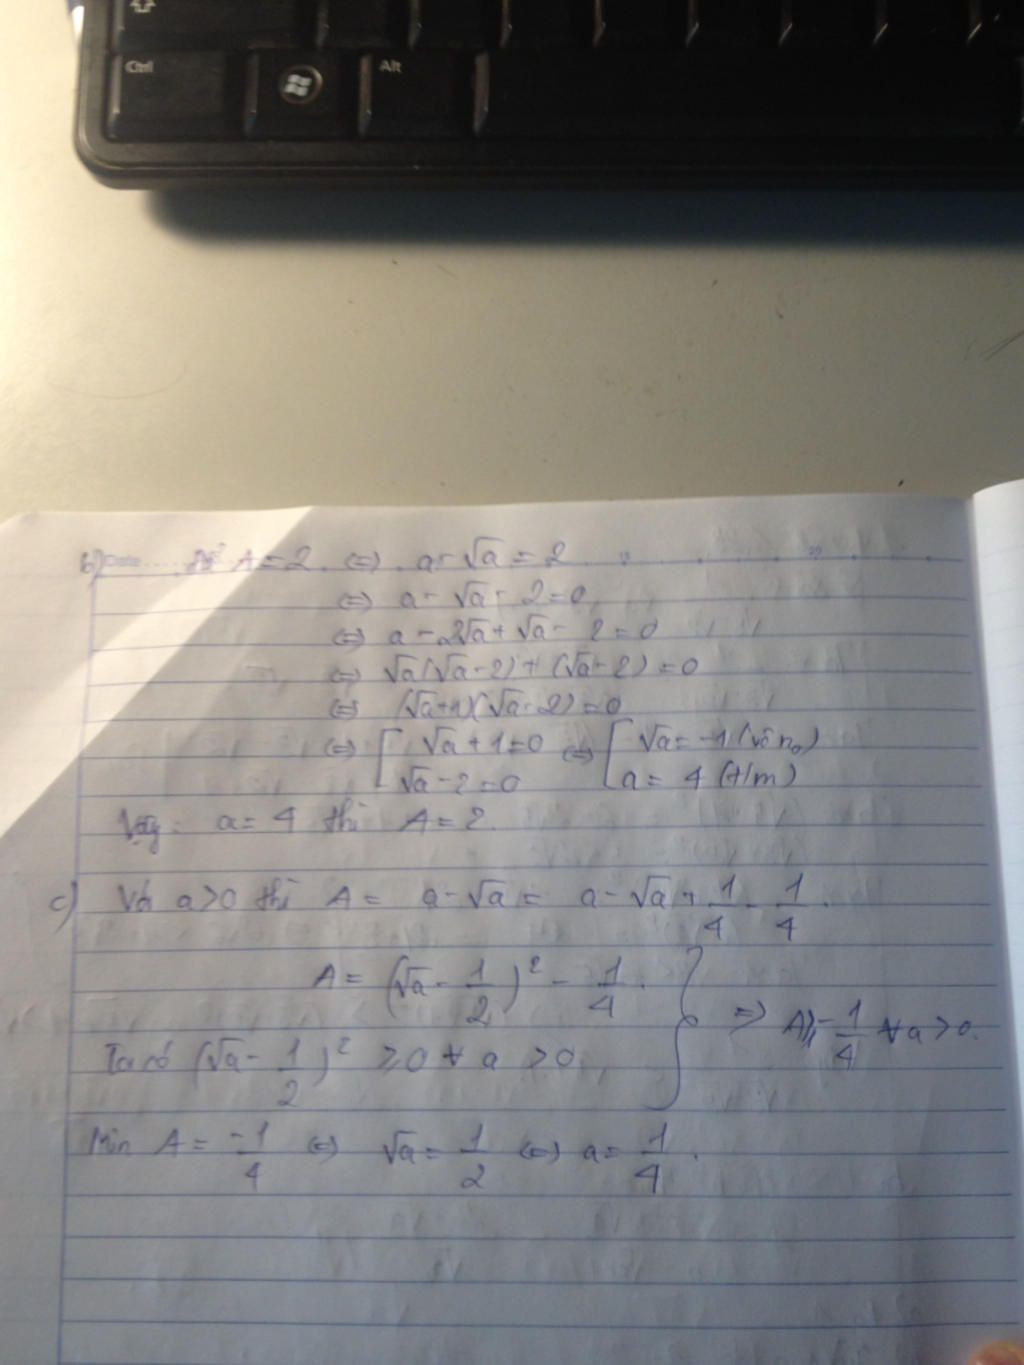 Ctrl
Alt
b) Date Để A = 2 ⇔ a - √a = 2
⇔ a - √a - 2 = 0
⇔ a - 2√a + √a - 2 = 0
⇔ √a(√a - 2) + (√a - 2) = 0
⇔ (√a + 1)(√a - 2) = 0
⇔ [ √a + 1 = 0 ⇔ [ √a = -1 (vô no)
√a - 2 = 0 a = 4 (t/m)
Vậy: a = 4 thì A = 2.
c) Với a > 0 thì A = a - √a = a - √a + 1/4 - 1/4.
A = (√a - 1/2)² - 1/4.
Ta có (√a - 1/2)² ≥ 0 ∀ a > 0 } ⇒ A ≥ -1/4 ∀ a > 0.
Min A = -1/4 ⇔ √a = 1/2 ⇔ a = 1/4.